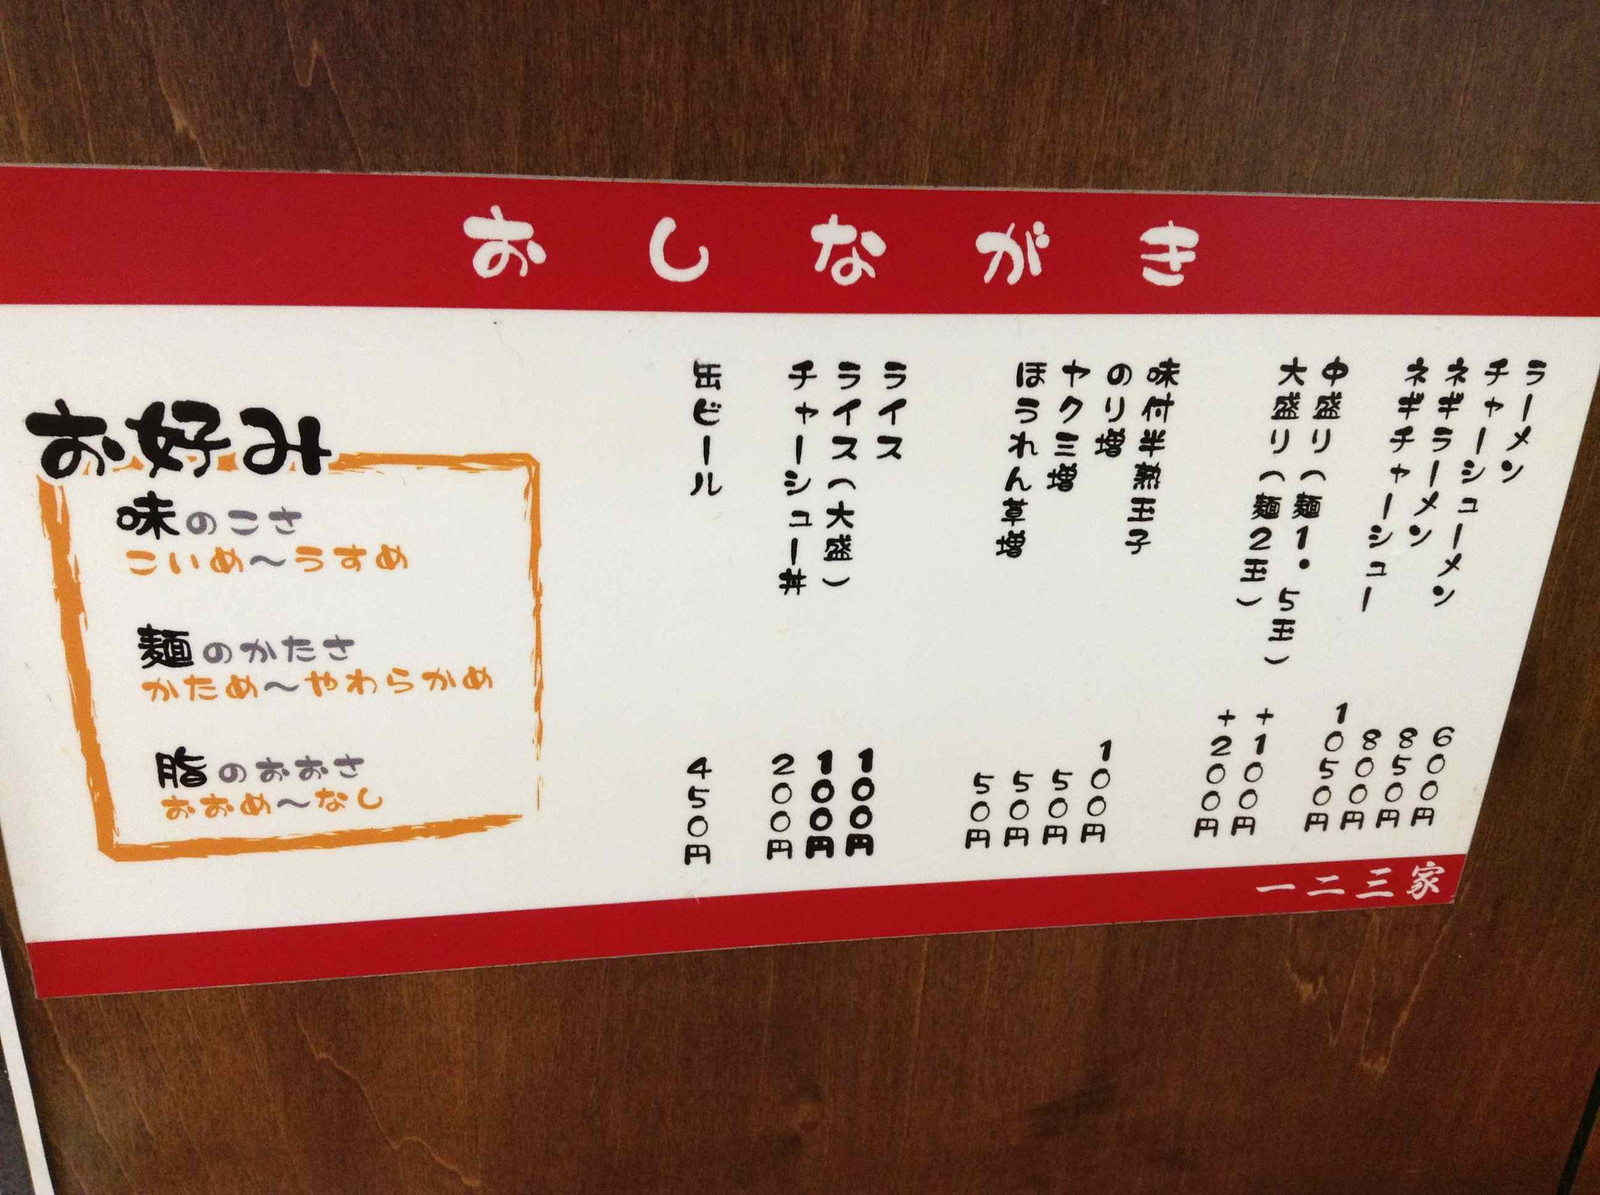 おしながき
ラーメン 600円
チャーシューメン 850円
ネギラーメン 800円
ネギチャーシュー 1050円
中盛り(麺1.5玉) +100円
大盛り(麺2玉) +200円
味付半熟玉子 100円
のり増 50円
ヤクミ増 50円
ほうれん草増 50円
ライス 100円
ライス(大盛) 100円
チャーシュー丼 200円
缶ビール 450円
お好み
味のこさ
こいめ〜うすめ
麺のかたさ
かため〜やわらかめ
脂のおおさ
おおめ〜なし
一二三家